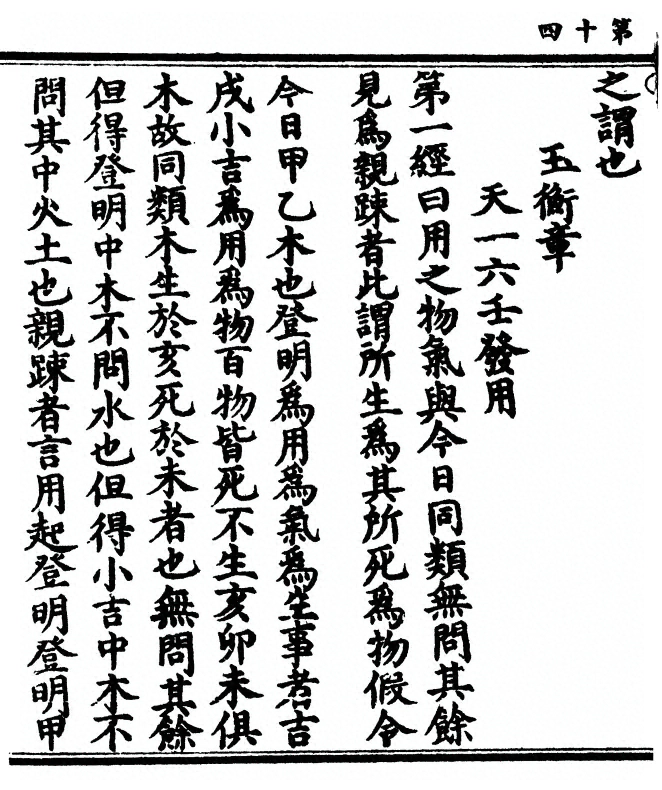 第十四
之謂也
玉衡章
天一六壬發用
第一經曰用之物氣與今日同類無問其餘
見爲親踈者此謂所生爲其所死爲物假令
今日甲乙木也登明爲用爲氣爲生事者吉
戌小吉爲用爲物百物皆死不生亥卯未俱
木故同類木生於亥死於未者也無問其餘
但得登明中木不問水也但得小吉中木不
問其中火土也親踈者言用起登明登明甲